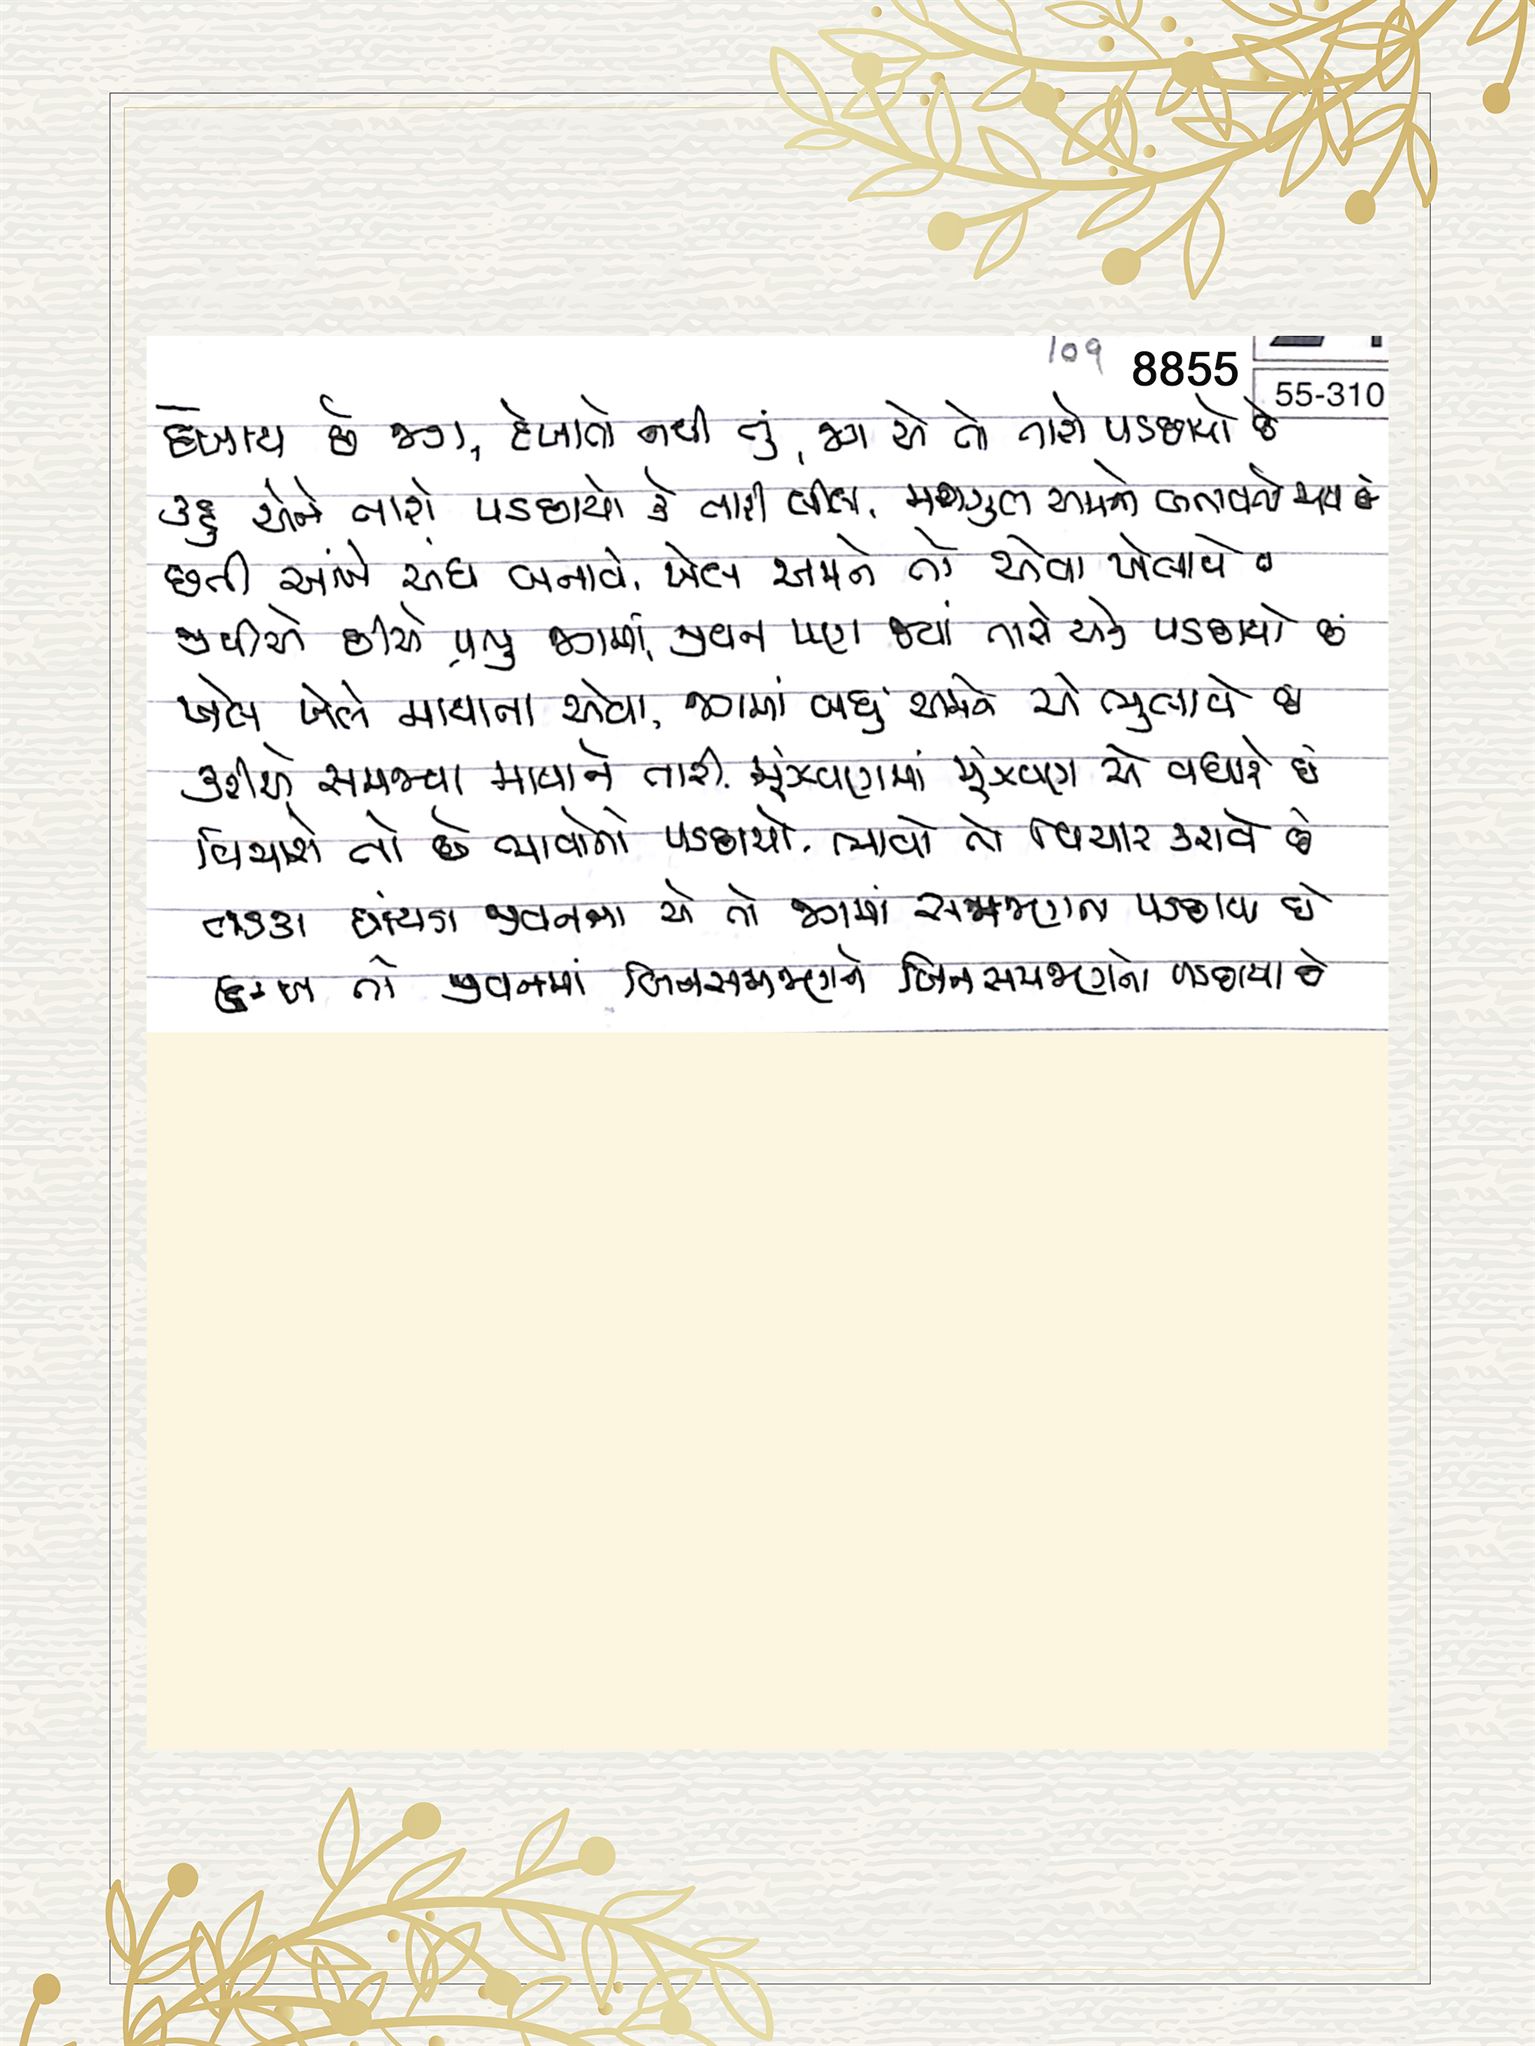 109 8855
55-310
દેખાય છે જગ, દેખાતો નથી તું, જગ એ તો તારો પડછાયો છે
કહું એને તારો પડછાયો કે તારી લીલા, મશગુલ અમને બનાવતો જાય છે
છતી આંખે અંધ બનાવે, ખેલ અમને તો એવા ખેલાવે છે
જીવીએ છીએ પ્રભુ જગમાં, જીવન પણ જ્યાં તારો એક પડછાયો છે
ખેલ ખેલે માયાના એવા, જગમાં બધું અમને એ ભુલાવે છે
કરીએ સમજવા માયાને તારી, મૂંઝવણમાં મૂંઝવણ એ વધારે છે
વિચારો તો છે ભાવોનો પડછાયો, ભાવો તો વિચાર કરાવે છે
તડકા છાંયડા જીવનના એ તો જગમાં સમજણના પડછાયા છે
દુઃખ તો જીવનમાં બિનસમજણને બિનસમજણનો પડછાયા છે